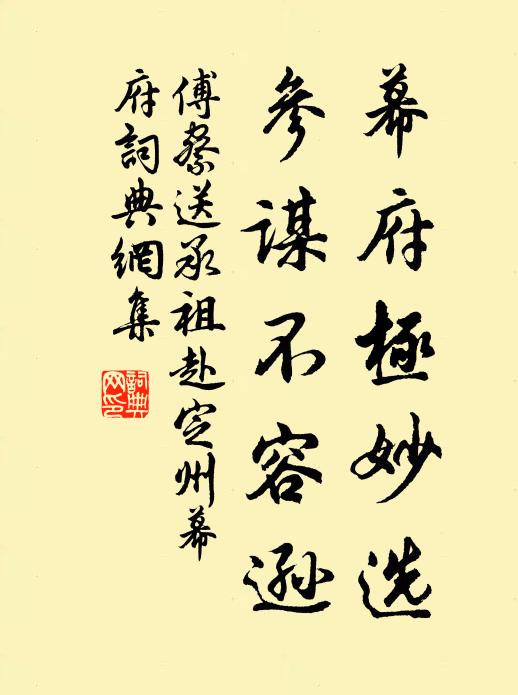 幕府極妙选
參谋不容遜
傅察送承祖赴定州幕
府詞典網集
詞典
网印